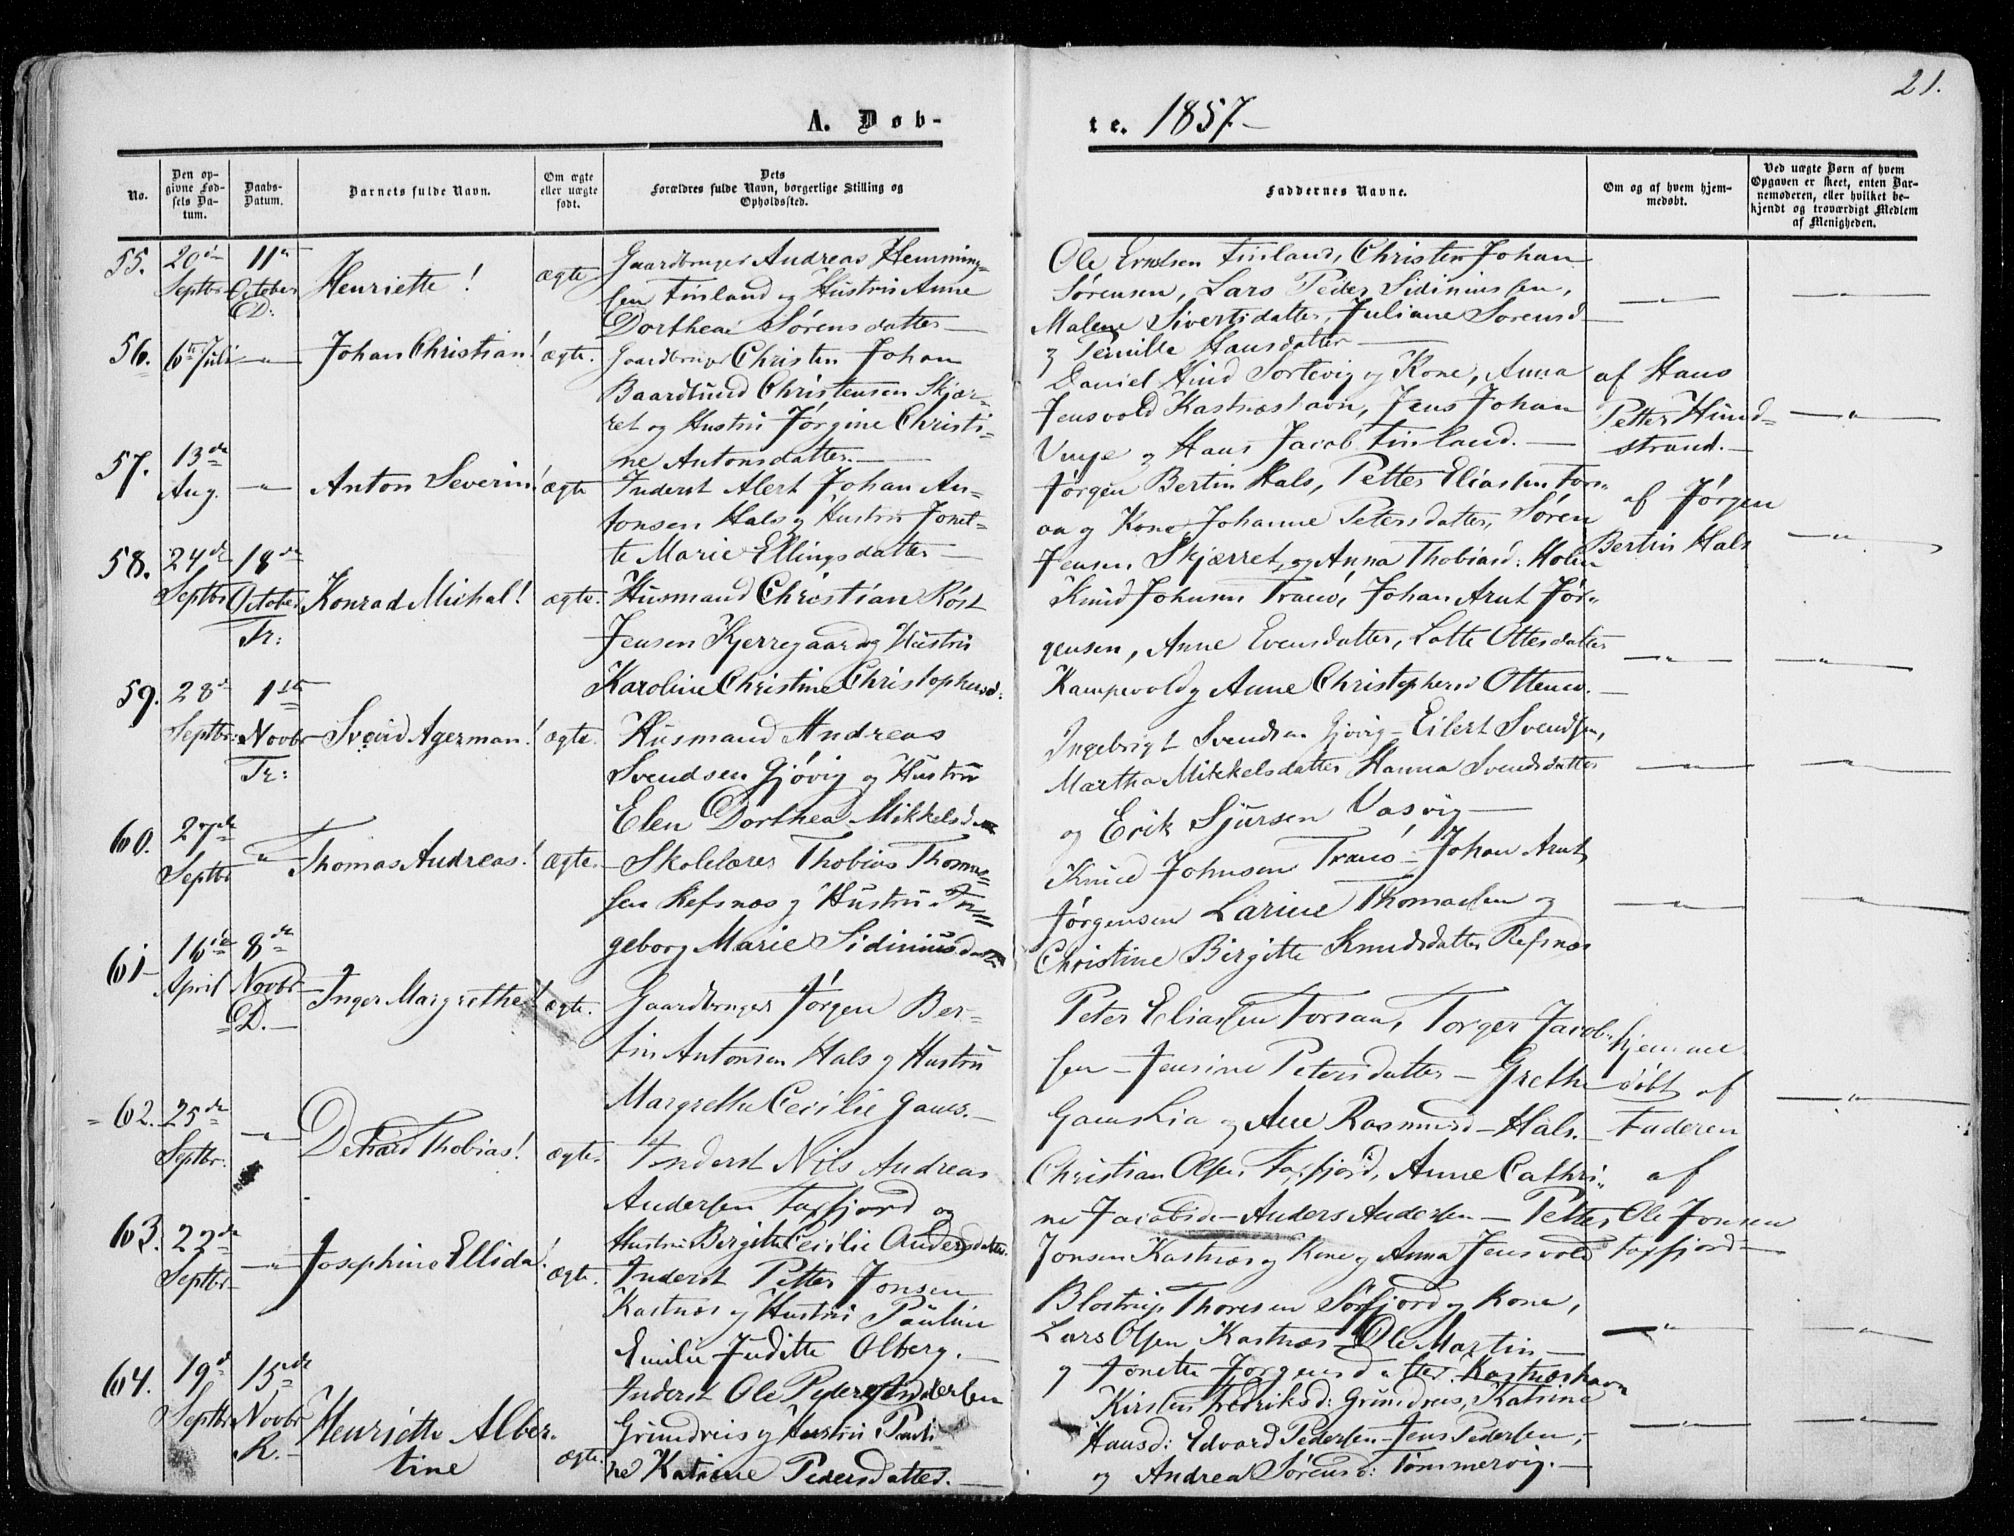 21.
A. Døb-
te. 1857.-
No.
Den op-
givne Fød-
sels Da-
tum.
Daabs-
Datum.
Barnets fulde Navn.
Om ægte
eller uægte
født.
Dets
Forældres fulde Navn, borgerlige Stilling og
Opholdssted.
Faddernes Navne.
Om og af hvem hjem-
medøbt.
Ved uægte Børn af hvem
Opgaven er skeet, enten Bar-
nemoderen, eller hvilket be-
kjendt og troværdigt Medlem
af Menigheden.
55.
20de
Septbr
11te
October
D:
Henriette!
ægte
Gaardbruger Andreas Hemming-
sen Finland og Hustru Anne
Dorthea Sørensdatter
Ole Ernstsen Finland, Christen Johan
Sørensen, Lars Peder Sidiniussen,
Malene Sivertsdatter, Juliane Sorensd
og Pernille Hansdatter
56.
6te Juli
Johan Christian!
ægte.
Gaardbruger Christen Johan
Baardlund Christensen Skjær-
ret og Hustru Jørgine Christi-
ne Antonsdatter.
Daniel Hind Sortevig og Kone, Anna
Jensvold Kastnæshavn, Jens Johan
og Hans Jacob Finland.
af Hans
Petter Hund-
strand.
57.
13de
Aug.
Anton Severin!
ægte
Inderst Alert Johan An-
tonsen Hals og Hustru Jonet-
te Marie Ellingsdatter
Jørgen Bertin Hals, Petter Eliassen Fors-
aa og Kone Johanne Petersdatter, Søren
Jensen Skjærret, og Anna Thobiasd: Holm
af Jørgen
Bertin Hals
58.
24de
Septbr
18de
October
Tr:
Konrad Michal!
ægte.
Husmand Christian Røst
Jensen Kjerregaard og Hustru
Karoline Christine Christophersd:
Knud Johnsen Tranø, Johan Arnt Jør-
gensen, Anne Evensdatter, Lotte Ottesdatter
Kampevold og Anne Christophersd
59.
28de
Septbr
1ste
Novbr
Tr:
Sveid Agerman!
ægte.
Husmand Andreas
Svendsen Gjøvig og Hustru
Elen Dorthea Mikkelsd
Ingebrigt Svendsen Gjøvig - Eilert Svendsen,
Martha Mikkelsdatter Hanna Svendsdatter
og Erik Sjursen Vasvig
60.
27de
Septbr
Thomas Andreas!
ægte.
Skolelærer Thobias Thomas-
sen Refsnæs og Hustru In-
geborg Marie Sidiniusd
Knud Johnsen Tranø - Johan Arnt
Jørgensen Larine Thomassen og
Christine Birgitte Knudsdatter Refsnæs
61
16de
April
8de
Novbr
D.
Inger Margrethe!
ægte.
Gaardbruger Jørgen Ber-
tin Antonsen Hals og Hustru
Margrethe Cecilie Gams.
Peter Eliassen Forsaa, Torger Jacob-
sen - Jensine Petersdatter - Grethe
Gams Lia og Ane Rasmusd - Hals.
hjemme
døbt af
Faderen
62.
25de
Septbr.
Thobias!
ægte.
Inderst Nils Andreas
Andersen Faxfjord og
Hustru Birgitte Cecilie Andersdatter.
Christian Olsen Faxfjord, Anne Cathri-
ne Jacobsd - Anders Andersen - Petter
Jonsen Kastnæs og Kone og Anna Jensvold
af
Ole Jonsen
Faxfjord
63.
22de
Septbr
Josephine Ellida!
ægte.
Inderst Petter Jonsen
Kastnæs og Hustru Pauline
Emilie Juditte Olberg.
Blostrup Thoresen Sørfjord og Kone,
Lars Olsen Kastnæs - Ole Martin
og Jonette Jørgensdatter Kastnæshavn
64.
19de
Septbr
15de
Novbr
R.
Henriette Alber-
tine
ægte.
Inderst Ole Peder Andersen
Grundreis og Hustru Pauli-
ne Katrine Pedersdatter.
Kirsten Fredriksd: Grundreis, Katrine
Hansd: Edvard Pedersen - Jens Pedersen,
og Andrea Sørensd: Tømmervig.